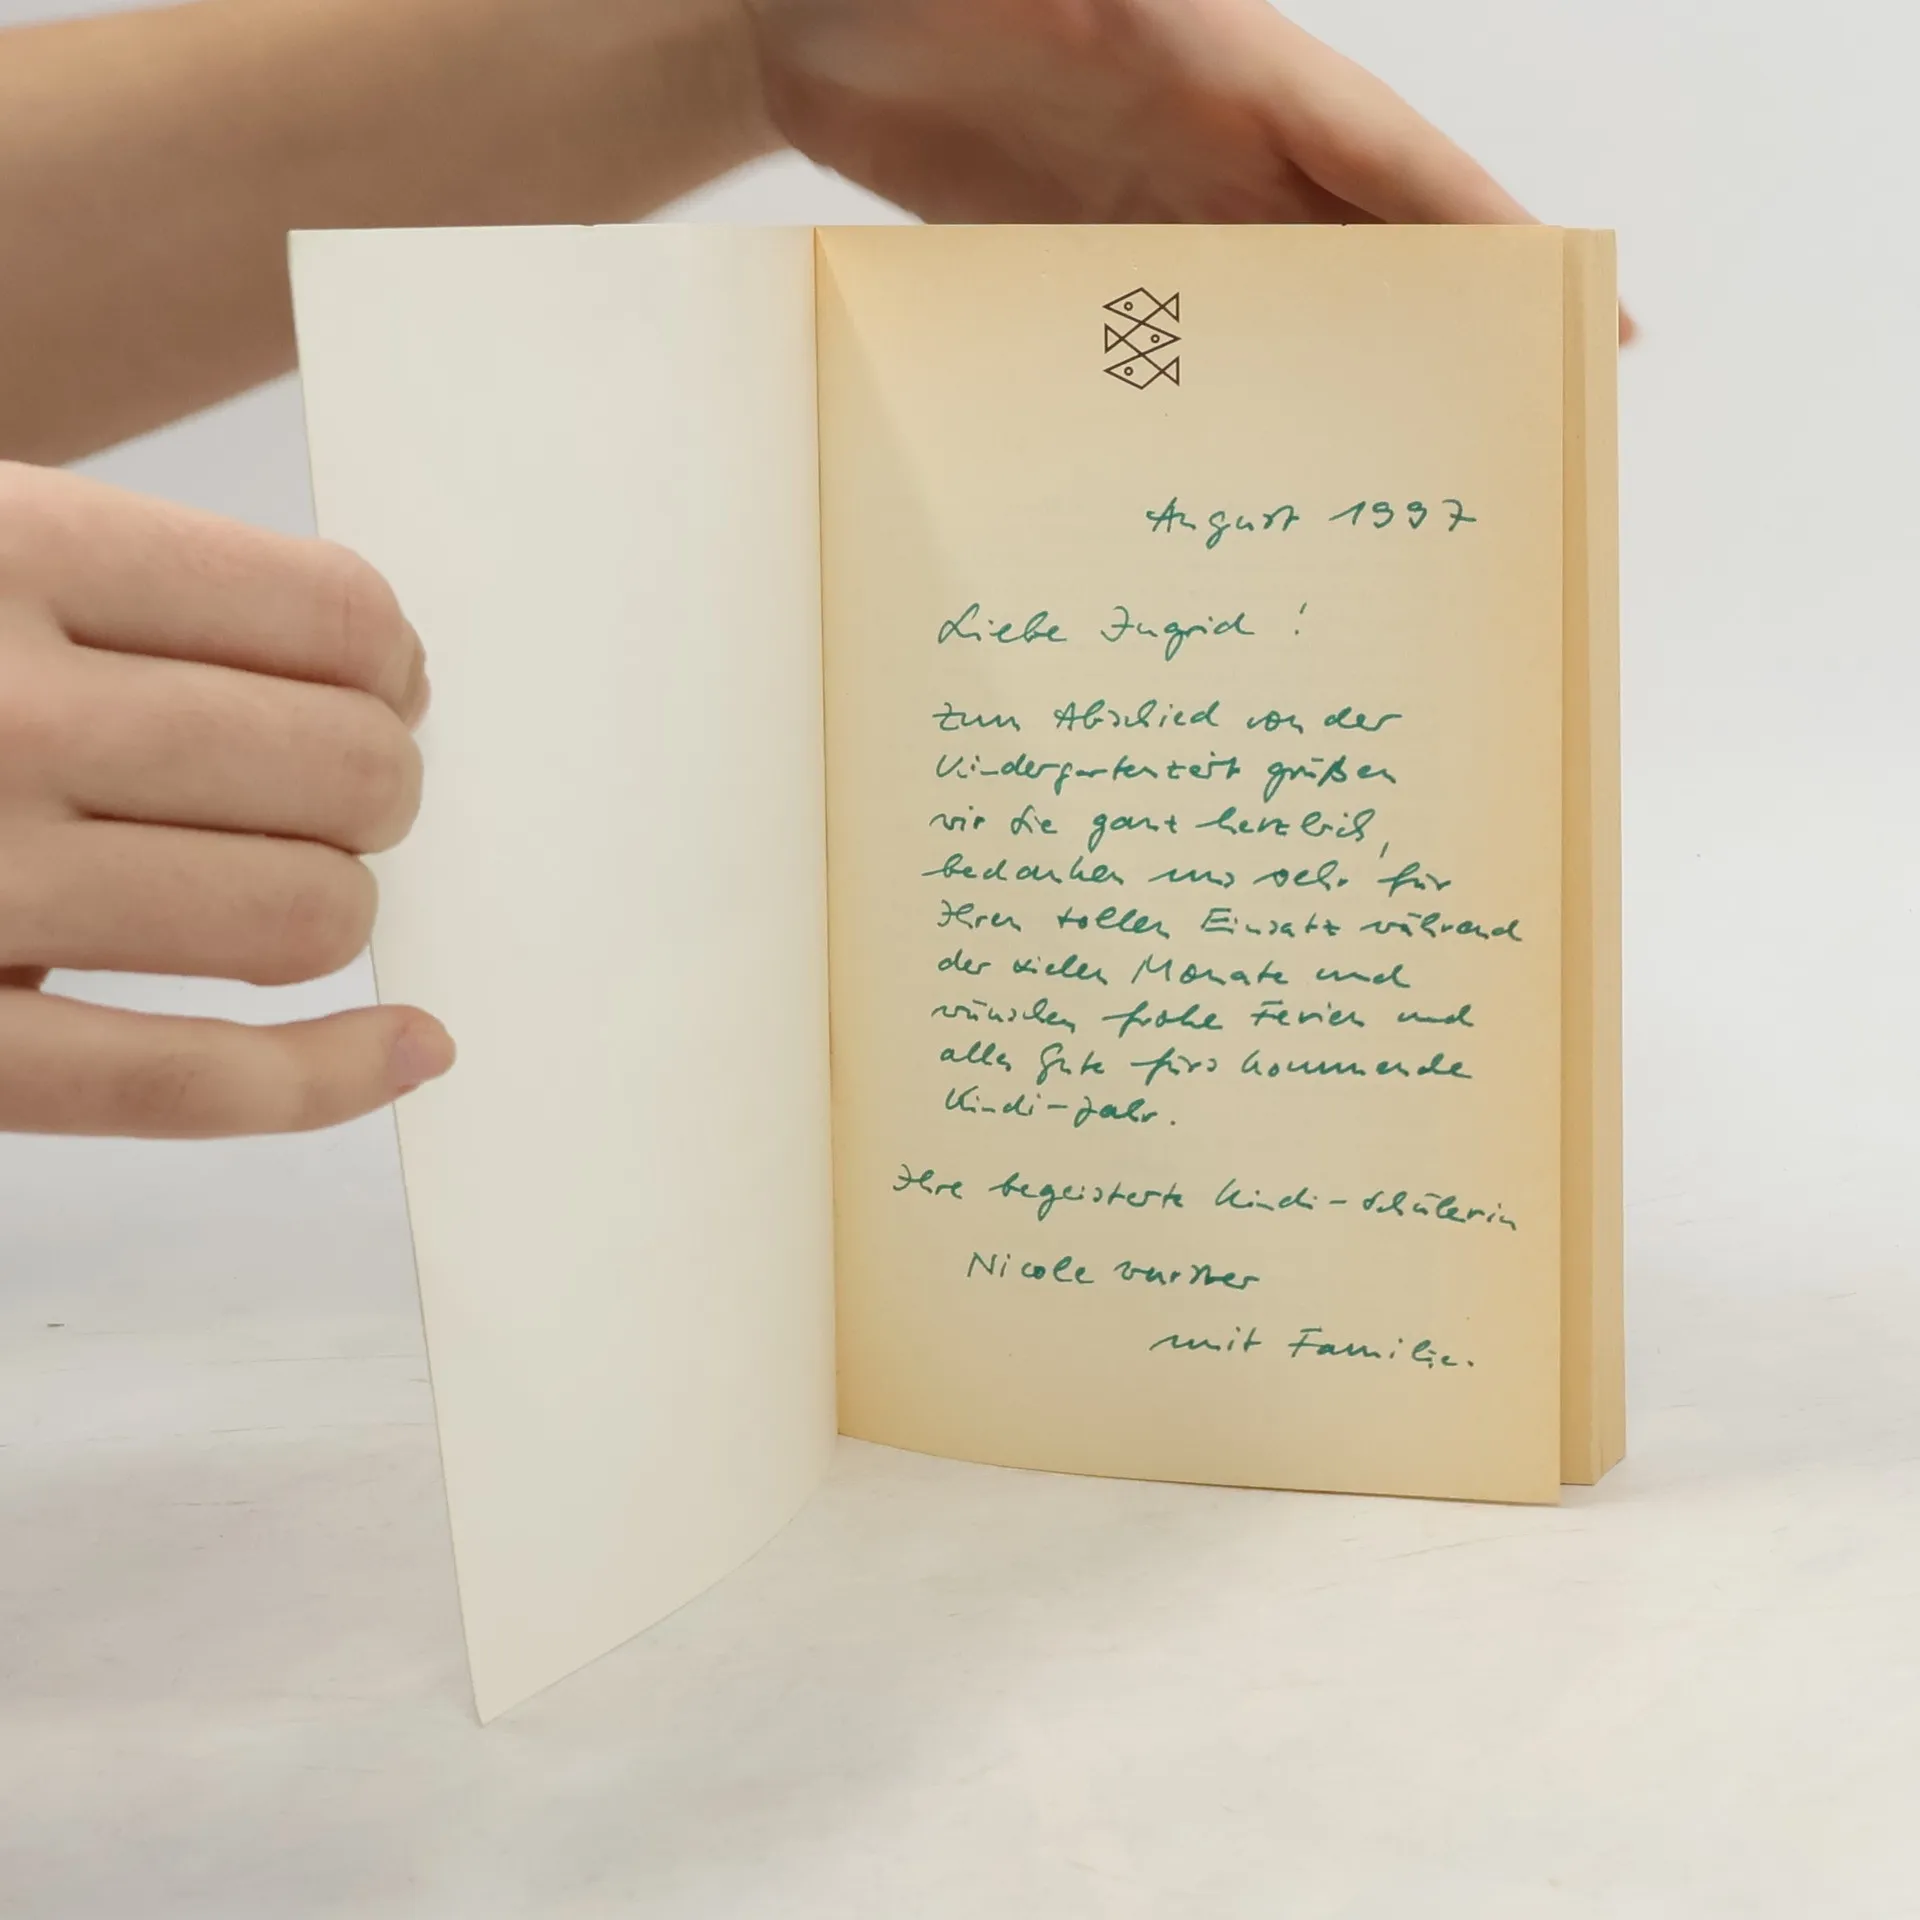 August 1997
Liebe Ingrid!
Zum Abschied von der
Kindergartenzeit grüßen
wir Sie ganz herzlich,
bedanken uns sehr für
Ihren tollen Einsatz während
der vielen Monate und
wünschen frohe Ferien und
alles Gute fürs kommende
Kindi-Jahr.
Ihre begeisterte Kindi-Schülerin
Nicole Wurster
mit Familie.